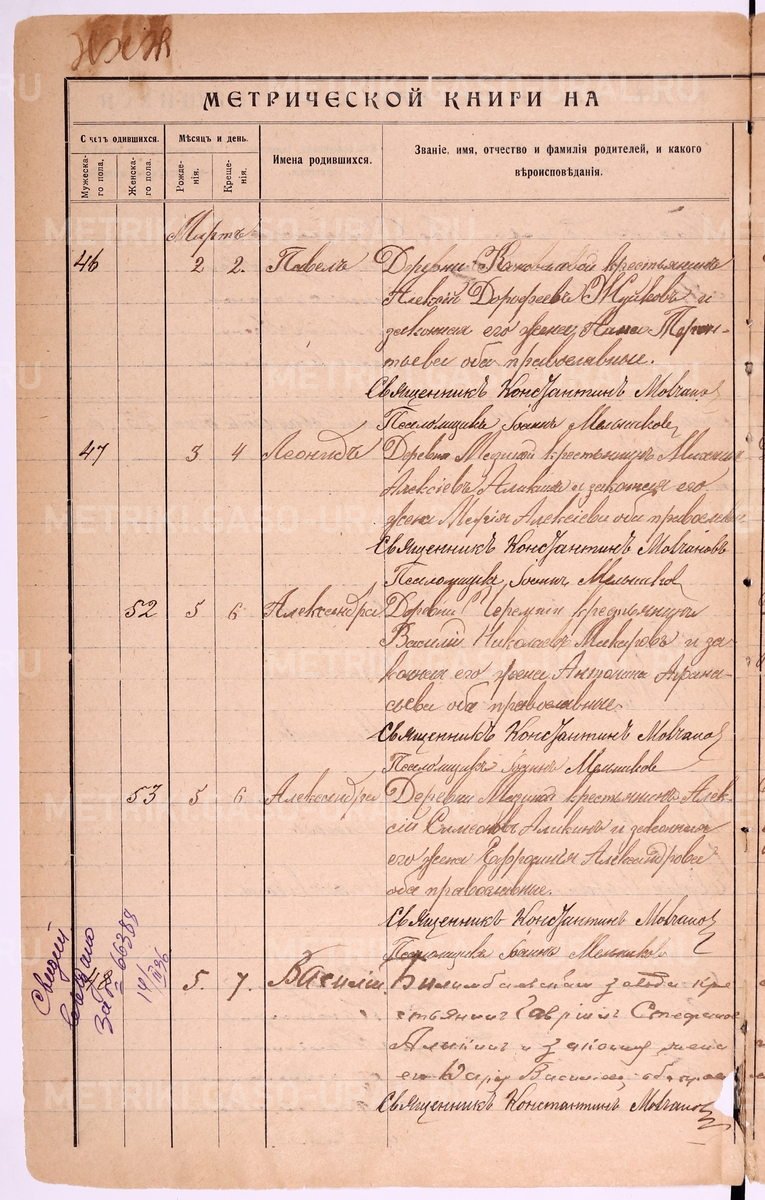 МЕТРИЧЕСКОЙ КНИГИ НА
Счетъ одившихся.
Мужеска-
го пола.
Женска-
го пола.
Мѣсяцъ и день.
Рожде-
нія.
Креще-
нія.
Имена родившихся.
Званіе, имя, отчество и фамилія родителей, и какого
вѣроисповѣданія.
Мартъ
46 2 2. Павелъ Деревни крестьянинъ
Алексѣй Дорофеевъ Жуйковъ и
законная его жена Анна Терен-
тьева оба православные.
Священникъ Константинъ Мовчанов
Псаломщикъ Іоаннъ Мельниковъ
47 3 4 Леонидъ Деревни Медяной крестьянинъ Михаилъ
Алексѣевъ Аликинъ и законная его
жена Марія Алексѣева оба православные
Священникъ Константинъ Мовчановъ
Псаломщикъ Іоаннъ Мельниковъ
52 5 6 Александра Деревни крестьянинъ
Василій Николаевъ Макаровъ и за-
конная его жена Антонина Афана-
сьева оба православные.
Священникъ Константинъ Мовчанов
Псаломщикъ Іоаннъ Мельниковъ
53 5 6 Александра Деревни Медяной крестьянинъ Алек-
сѣй Симеоновъ Аликинъ и законная
его жена Ефросинія Александрова
оба православные.
Священникъ Константинъ Мовчанов
Псаломщикъ Іоаннъ Мельниковъ
48 5. 7. Василій Билимбаевскаго завода кре
стьянинъ Гавріилъ Стефановъ
Аликинъ и законная жена
его Васильева оба прав
Священникъ Константинъ Мовчанов
за № 66388
METRIKI.GASO-URAL.RU